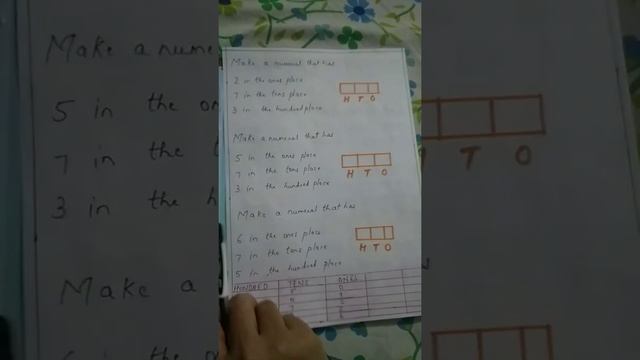 Make a numeral that has
2 in the ones place
7 in the tens place
3 in the hundred place
H T O
Make a numeral that has
5 in the ones place
7 in the tens place
3 in the hundred place
H T O
Make a numeral that has
6 in the ones place
7 in the tens place
5 in the hundred place
H T O
HUNDRED TENS ONES